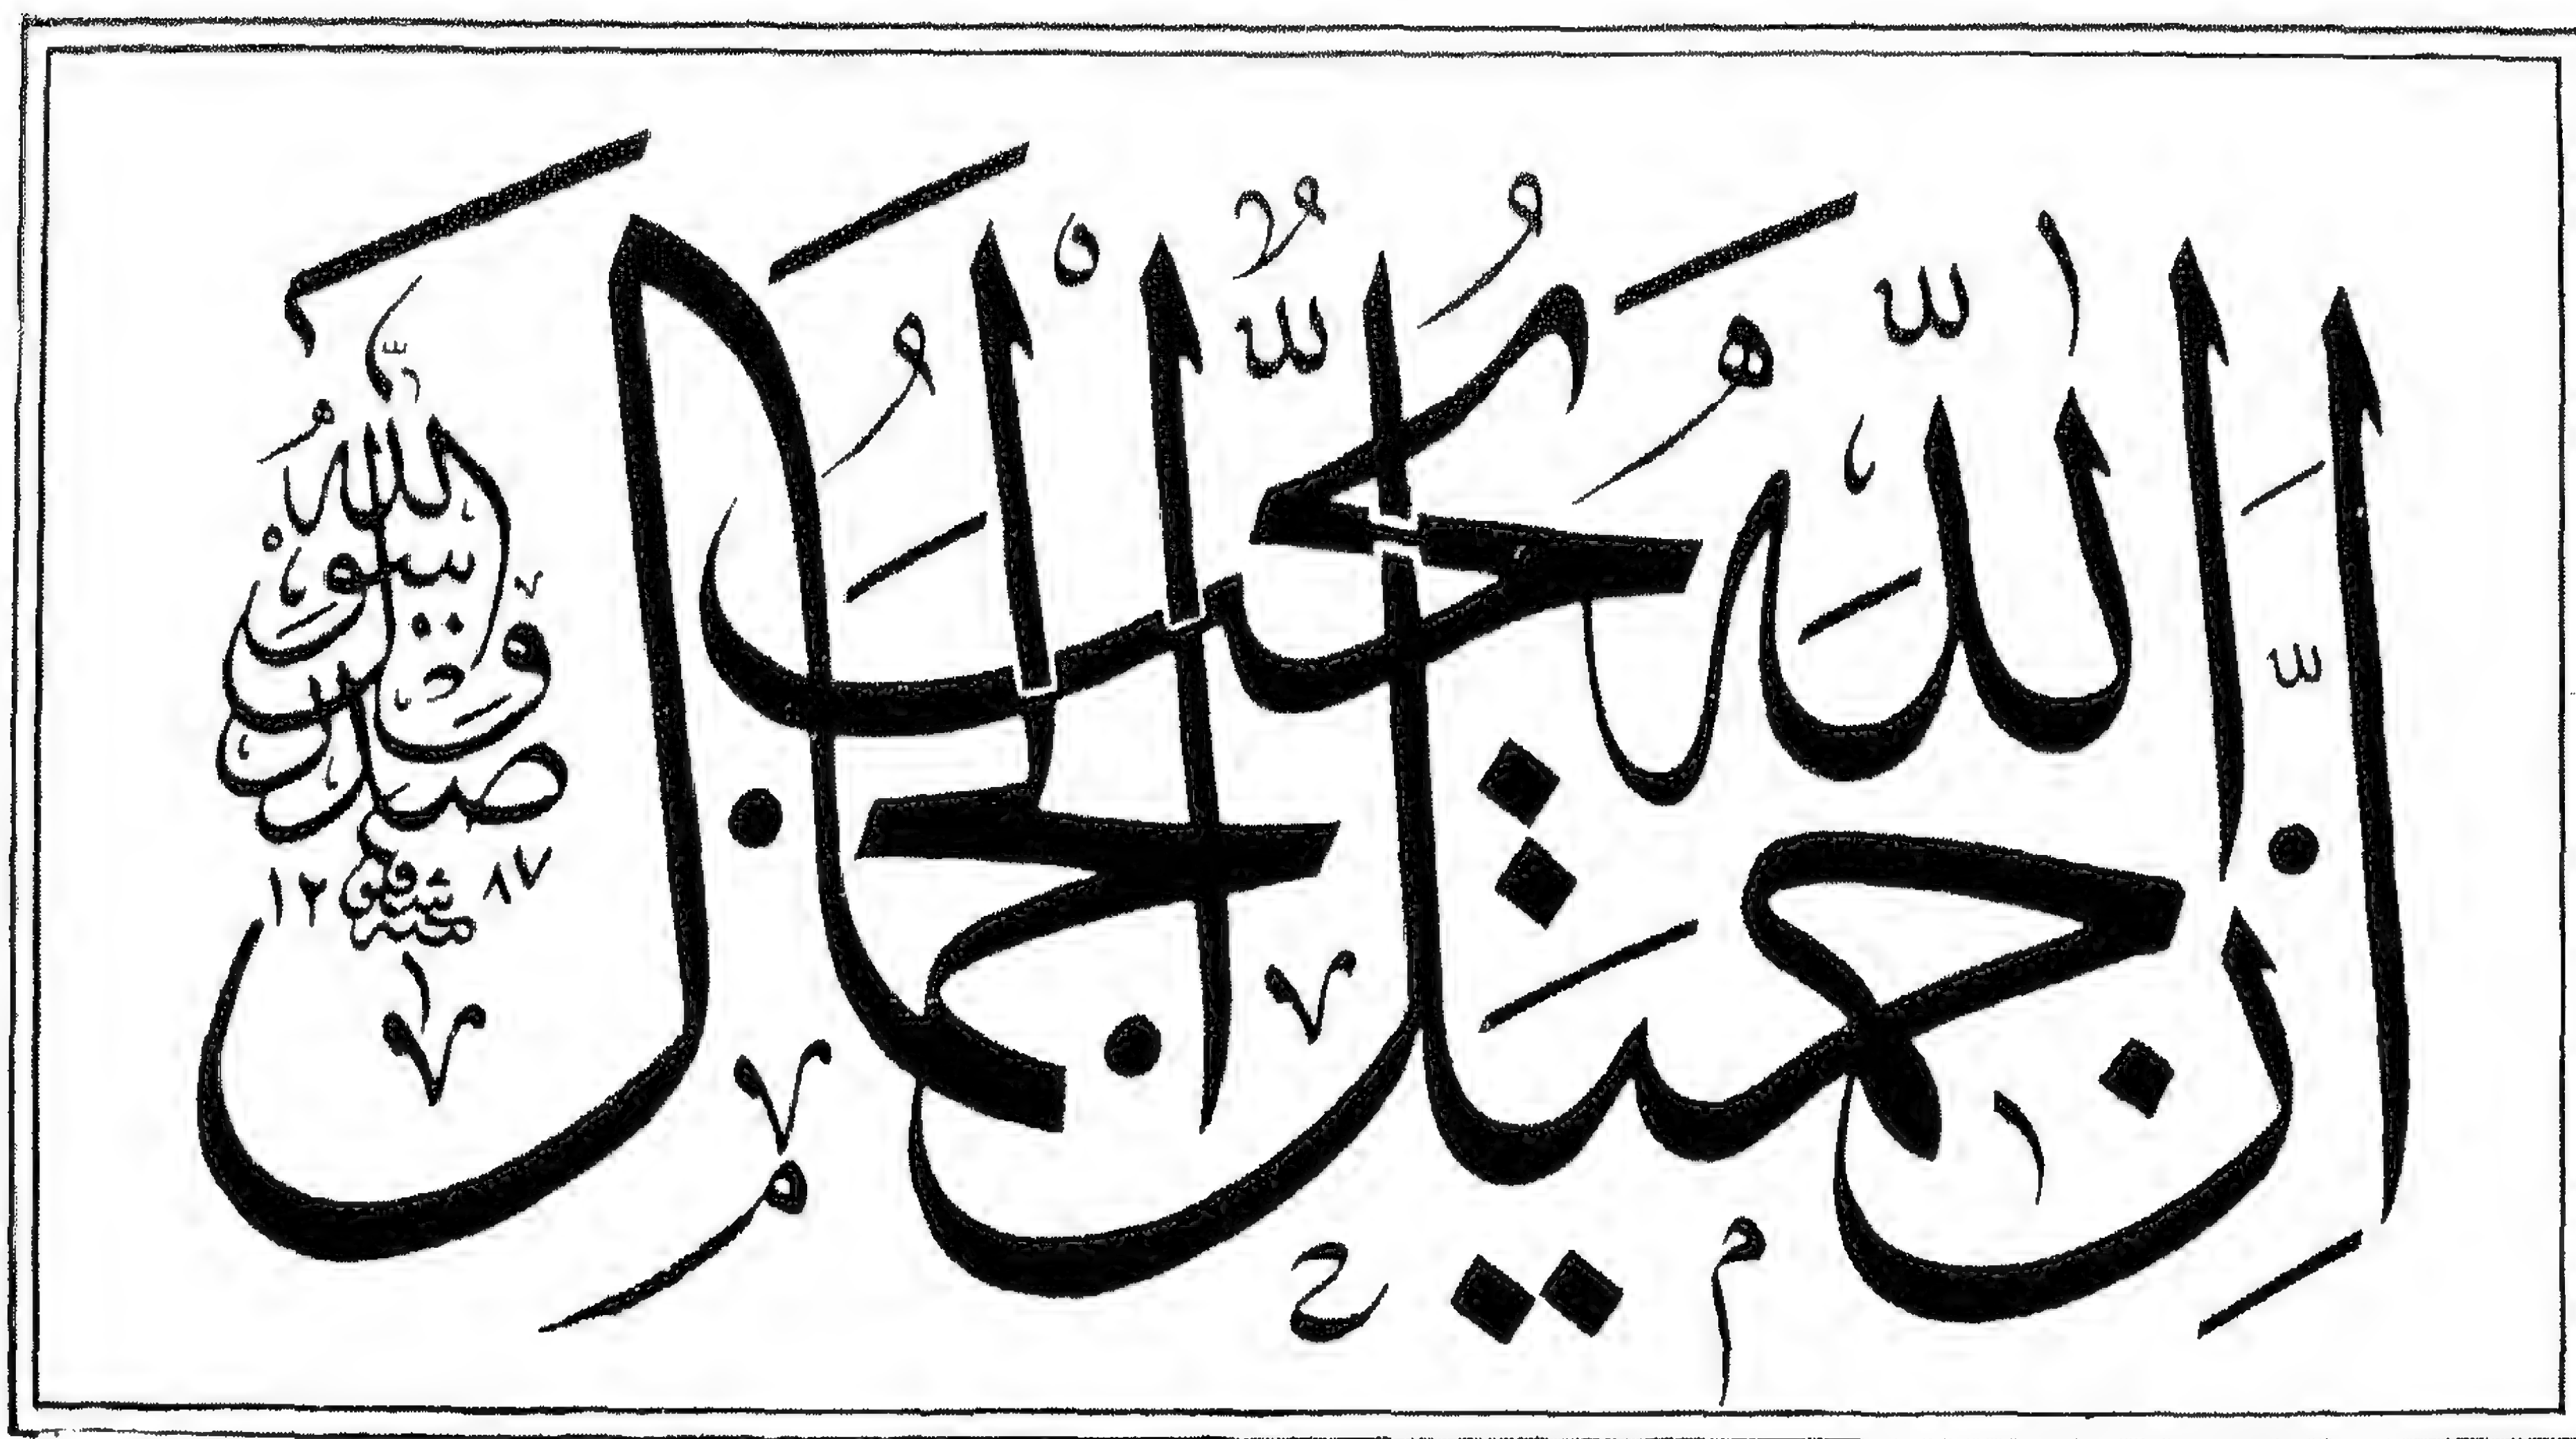 إِنَّ اللّٰهَ جَمِيلٌ يُحِبُّ الْجَمَالَ
صدق رسول اللّٰه
شفيق
١٢٨٧